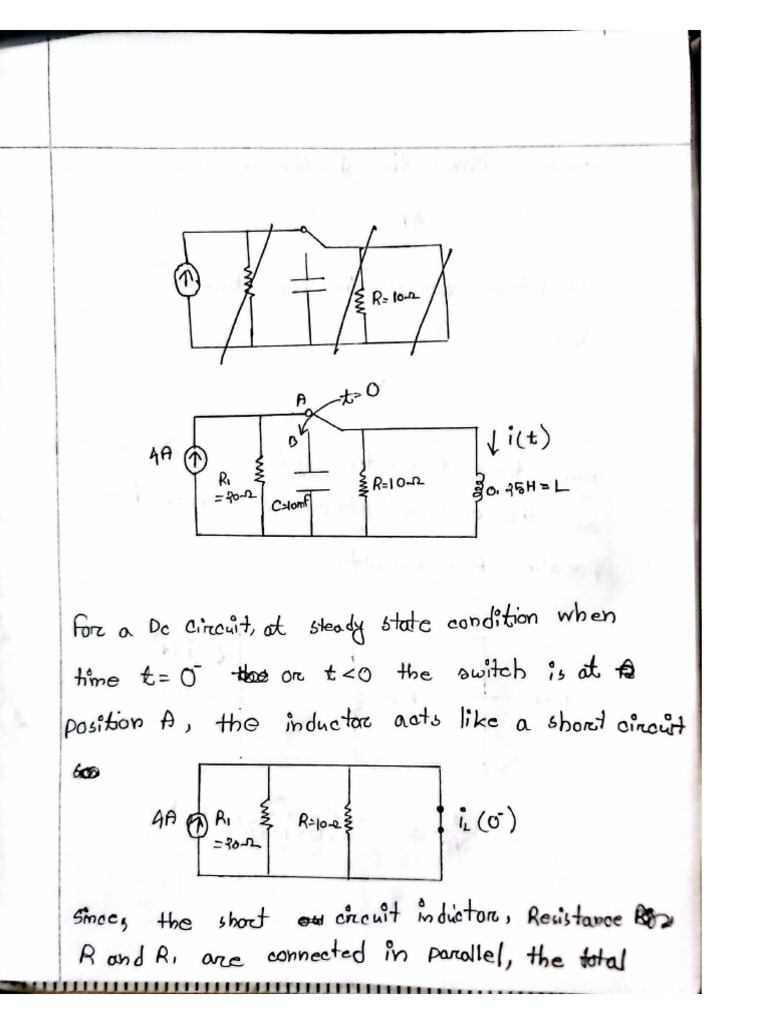 R=10Ω
A
t=0
B
4A
i(t)
R₁
=20Ω
C=10mf
R=10Ω
0.25H=L
For a Dc circuit, at steady state condition when
time t=0⁻ or t<0 the switch is at
position A, the inductor acts like a short circuit
4A
R₁
=20Ω
R=10Ω
i_L(0⁻)
Since, the short circuit inductor, Resistance
R and R₁ are connected in parallel, the total